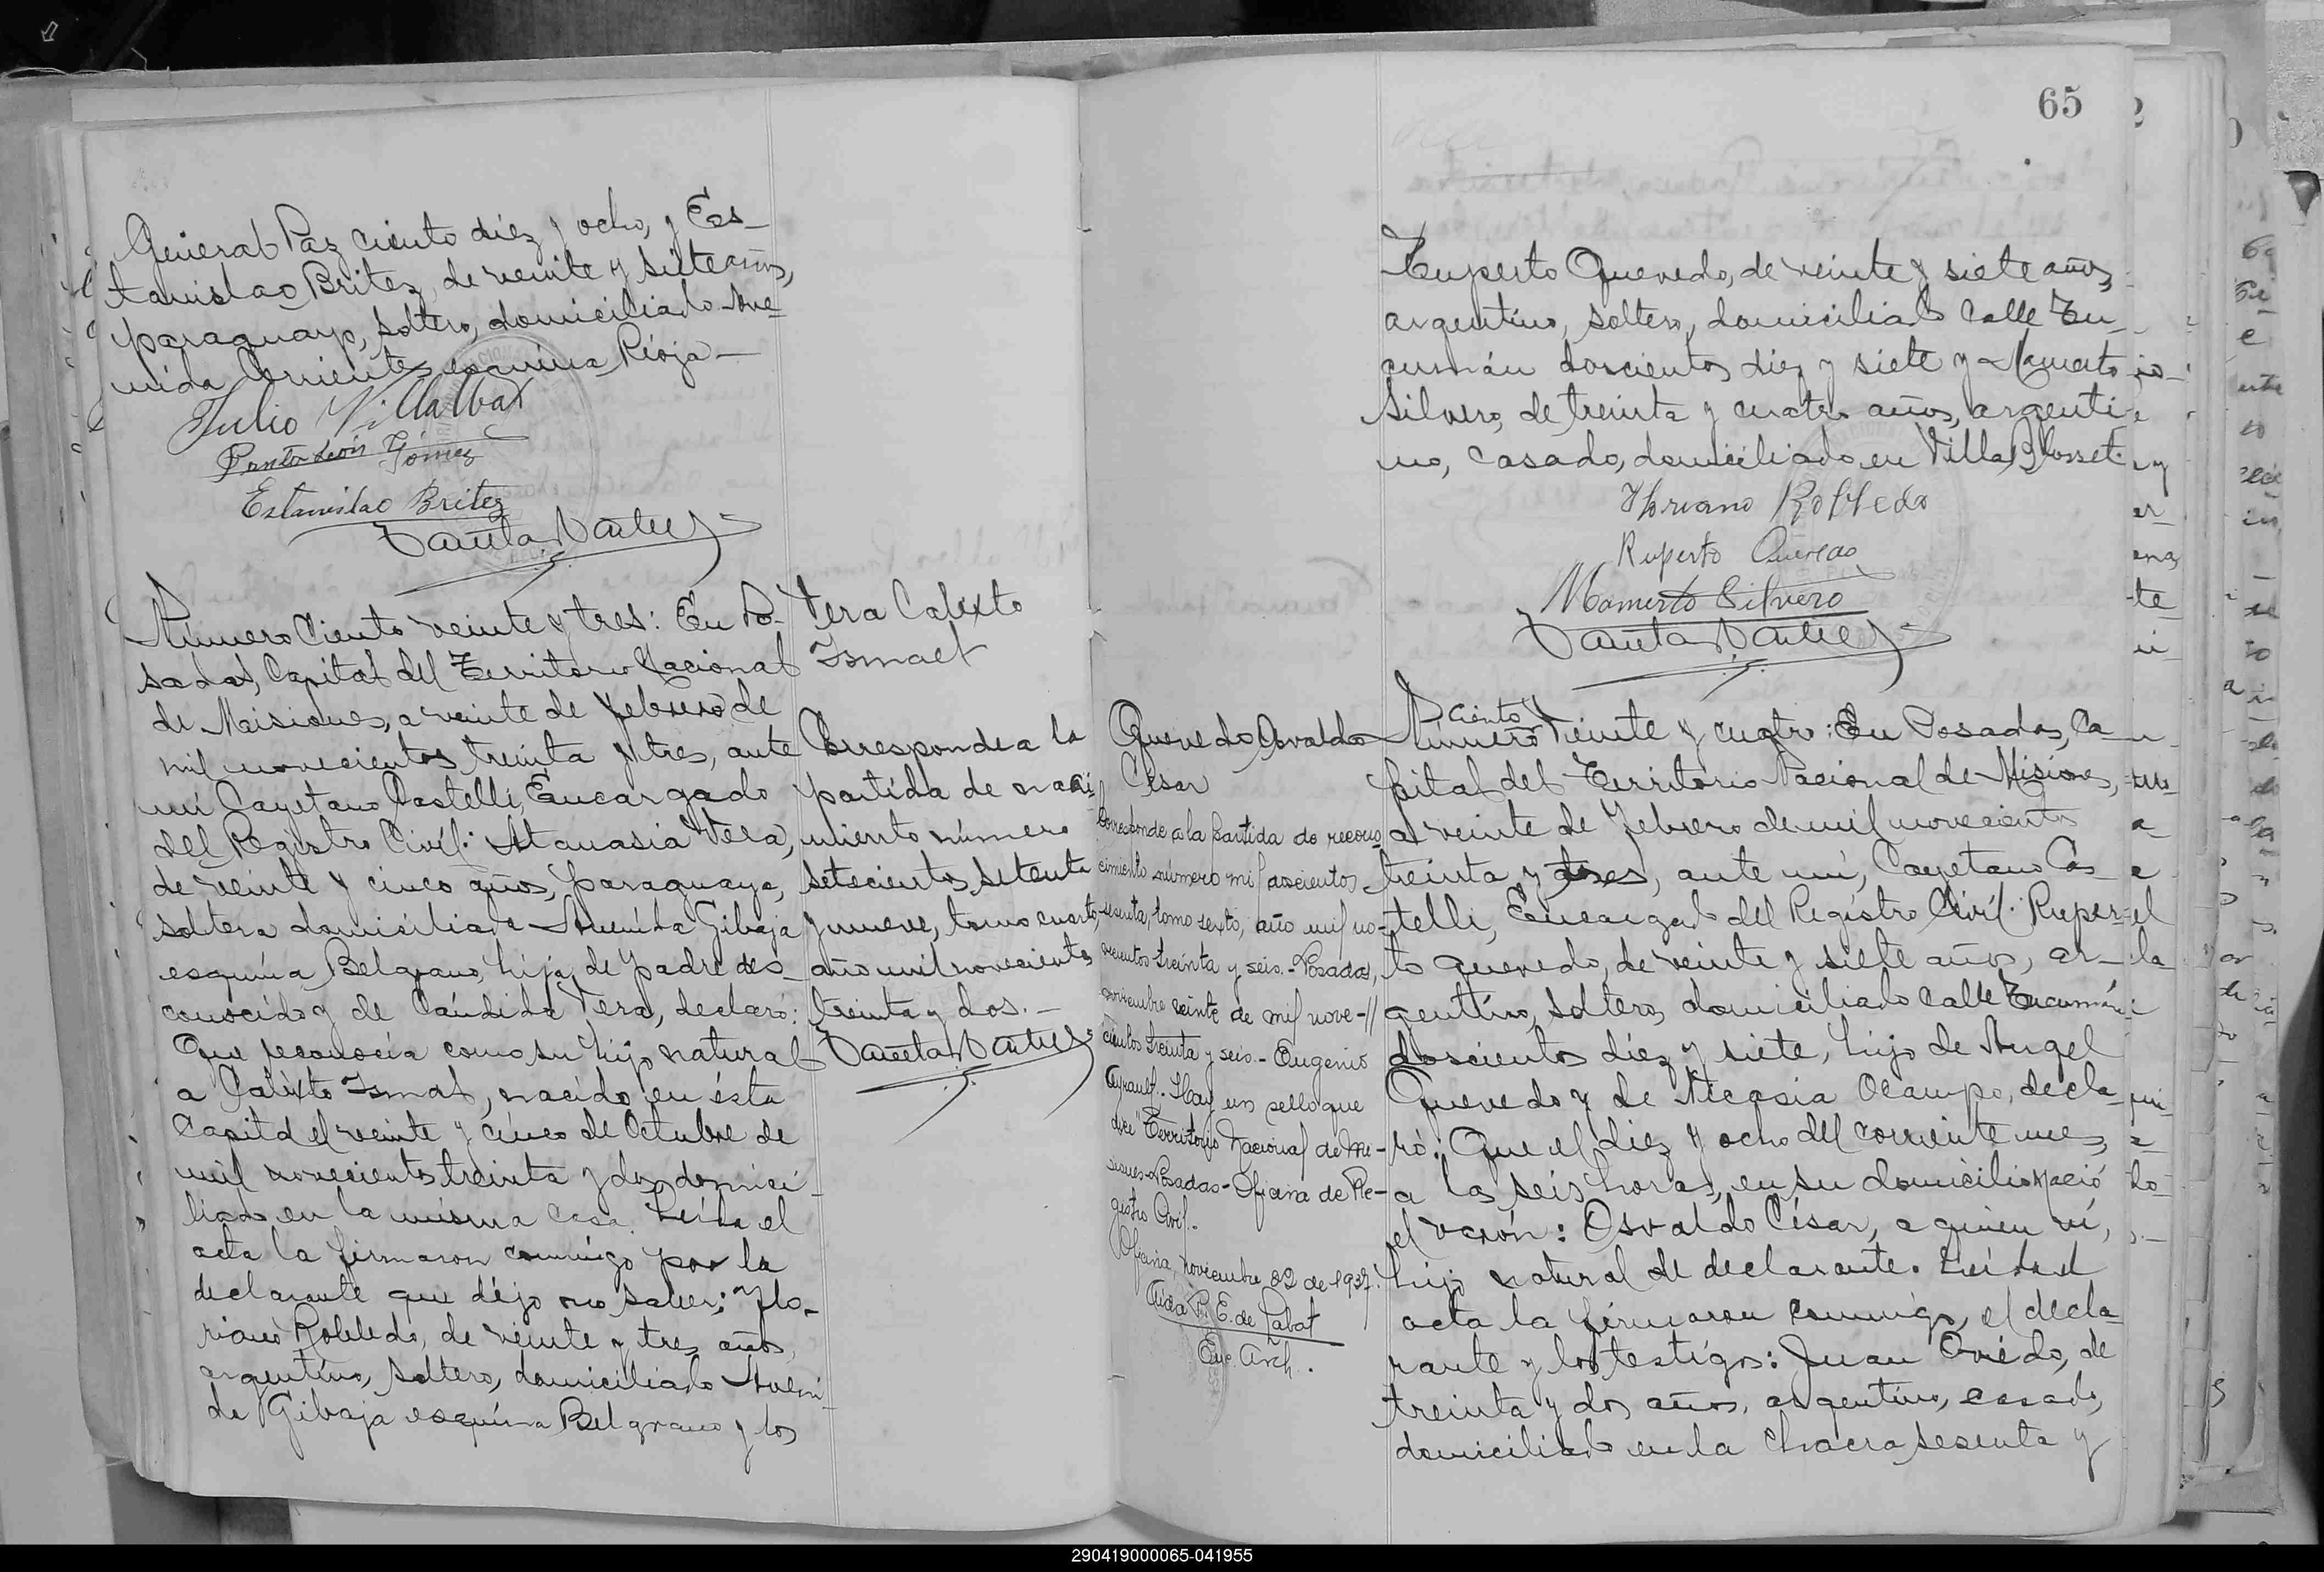 General Paz ciento diez y ocho, y Es-
tanislao Britez, de veinte y siete años,
paraguayo, soltero, domiciliado Ave-
nida Corrientes esquina Rioja—
Julio Villalba
Pantaleón Gómez
Estanislao Britez
Número Ciento veinte y tres: En Po-
sadas, Capital del Territorio Nacional
de Misiones, a veinte de febrero de
mil novecientos treinta y tres, ante
mí Cayetano Castelli, Encargado
del Registro Civil: Atanasia Vera,
de veinte y cinco años, paraguaya,
soltera domiciliada Avenida Gibaja
esquina Belgrano, hija de padre des-
conocido y de Cándida Vera, declaró:
Que reconocía como su hijo natural
a Calixto Ismael, nacido en ésta
Capital el veinte y cinco de Octubre de
mil novecientos treinta y dos, domici-
liado en la misma casa. Leída el
acta la firmaron conmigo por la
declarante que dijo no saber; Flo-
riano Robledo, de veinte y tres años,
argentino, soltero, domiciliado Aveni-
da Gibaja esquina Belgrano y los
Vera Calixto
Ismael
Corresponde a la
partida de naci-
miento número
setecientos setenta
y nueve, tomo cuarto,
año mil novecientos
treinta y dos.—
65
Ruperto Quevedo, de veinte y siete años,
argentino, soltero, domiciliado calle Tu-
cumán doscientos diez y siete y Mamerto
Silvero, de treinta y cuatro años, argenti-
no, casado, domiciliado en Villa Blosset.
Floriano Robledo
Ruperto Quevedo
Mamerto Silvero
Quevedo Osvaldo
César
Corresponde a la partida de recono-
cimiento número mil doscientos
sesenta, tomo sexto, año mil no-
vecientos treinta y seis.- Posadas,
noviembre veinte de mil nove-//
cientos treinta y seis.- Eugenio
Ayrault. Hay un sello que
dice "Territorio Nacional de Mi-
siones-Posadas- Oficina de Re-
gistro Civil.-
Oficina, noviembre 22 de 1937.
Aida P. E. de Labat
Enc. Arch.
ciento
Número Veinte y cuatro: En Posadas, Ca-
pital del Territorio Nacional de Misiones,
a veinte de febrero de mil novecientos
treinta y tres, ante mí, Cayetano Cas-
telli, Encargado del Registro Civil: Ruper-
to Quevedo, de veinte y siete años, ar-
gentino, soltero, domiciliado calle Tucumán
doscientos diez y siete, hijo de Angel
Quevedo y de Nicasia Ocampo, decla-
ró: Que el diez y ocho del corriente mes,
a las seis horas, en su domicilio nació
el varón: Osvaldo César, a quien ví,
hijo natural de declarante. Leída el
acta la firmaron conmigo, el decla-
rante y los testigos: Juan Oviedo, de
treinta y dos años, argentino, casado,
domiciliado en la chacra sesenta y
290419000065-041955